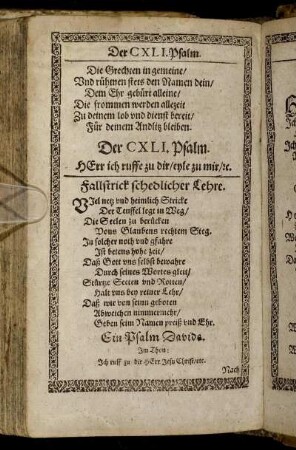 Der CXLI. Psalm.
Die Grechten in gemeine/
Vnd rühmen stets den Namen dein/
Dem Ehr gebürt alleine/
Die frommen werden allezeit
Zu deinem lob vnd dienst bereit/
Für deinem Andlitz bleiben.
Der CXLI, Psalm.
HErr ich ruffe zu dir/eyle zu mir/ꝛc.
Fallstrick schedlicher Lehre.
Viel netz vnd heimlich Stricke
Der Teuffel legt in Weg/
Die Seelen zu berücken
Vons Glaubens rechtem Steg.
In solcher noth vnd gfahre
Ist betens hohe zeit/
Daß Gott vns selbst bewahre
Durch seines Wortes gleit/
Stürtze Secten vnd Rotten/
Halt vns bey reiner Lehr/
Daß wir von seinn geboten
Abweichen nimmermehr/
Geben seim Namen preiß vnd Ehr.
Ein Psalm Davids.
Im Thon:
Ich ruff zu dir HErr Jesu Christ/ etc.
Nach